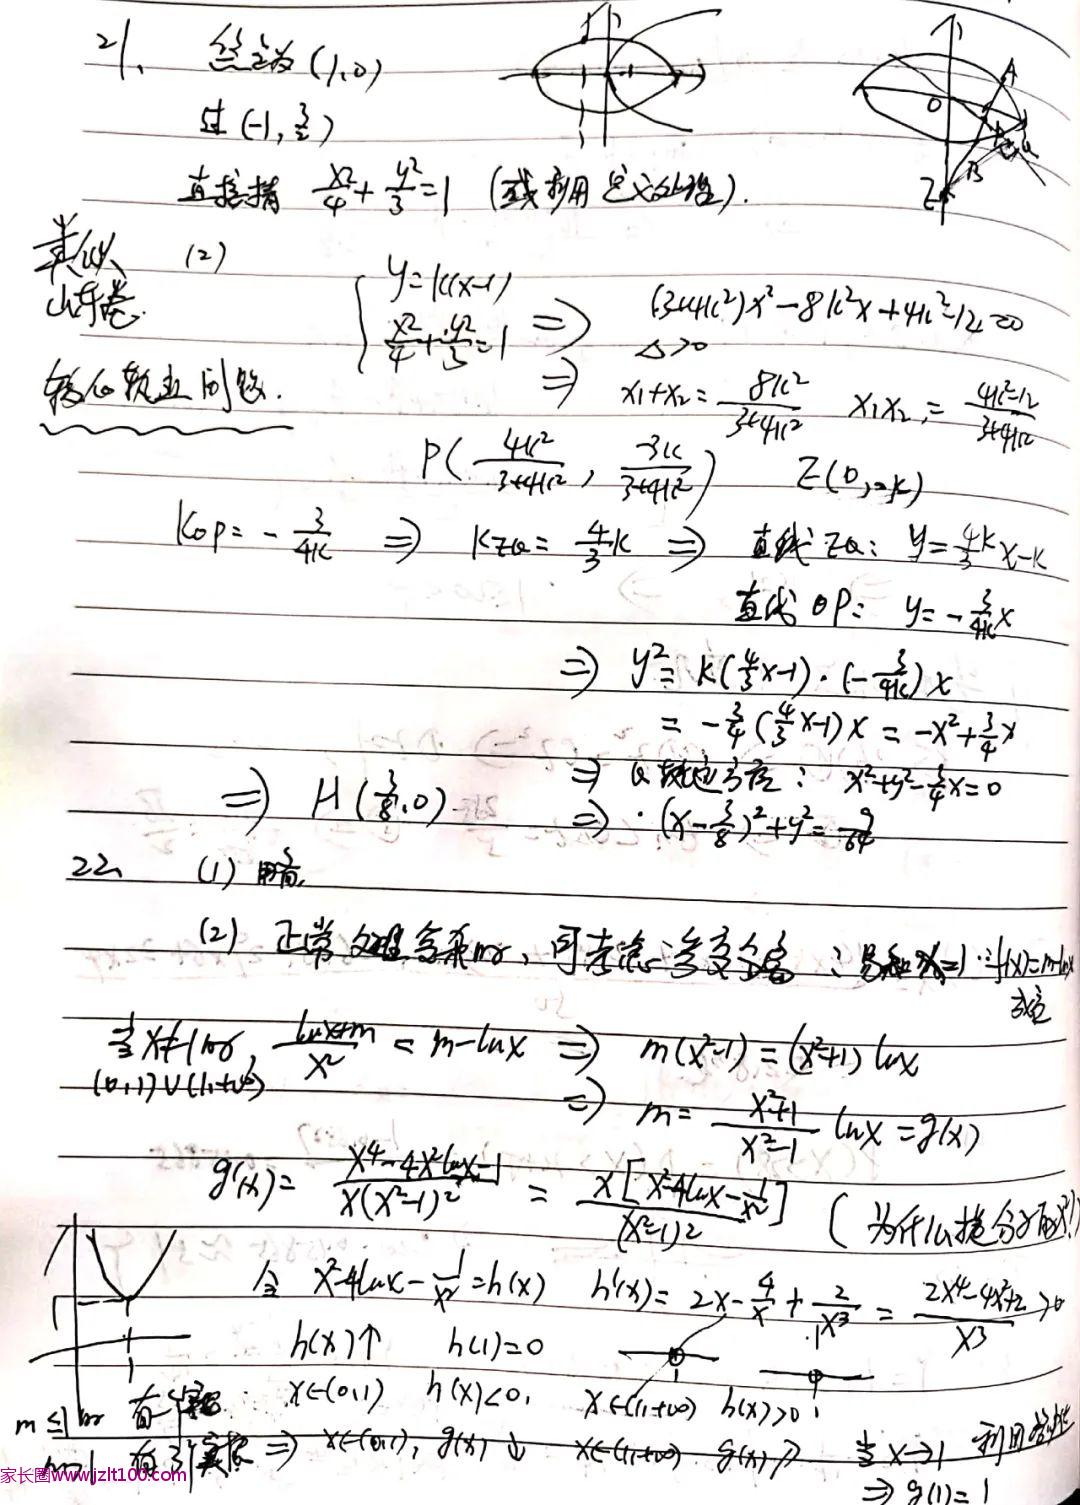 21. 焦点为 (1,0)
过 (-1, 3/2)
A
O
P
Q
B
Z
直接猜 x²/4 + y²/3 = 1 (或利用定义处理).
类似
山东卷.
(2)
{ y=k(x-1)
x²/4 + y²/3 = 1 ⇒ (3+4k²)x²-8k²x+4k²-12=0
Δ>0
⇒ x₁+x₂ = 8k²/(3+4k²) x₁x₂ = (4k²-12)/(3+4k²)
核心轨迹问题.
P( 4k²/(3+4k²) , -3k/(3+4k²) ) Z(0,-k)
kOP = - 3/4k ⇒ kZQ = 4/3 k ⇒ 直线ZQ: y = 4/3 k x-k
直线OP: y = - 3/4k x
⇒ y² = k(4/3 x-1)·(- 3/4k)x
= - 3/4 (4/3 x-1)x = -x²+ 3/4 x
⇒ Q轨迹方程: x²+y²- 3/4 x=0
⇒ H ( 3/8, 0) ⇒ (x- 3/8)²+y² = 9/64
22. (1) 略.
(2) 正常 , 可考虑参变分离 : 易知 x=1 f(x)=m-lnx
成立
当x≠1时, (lnx+m)/x² = m-lnx ⇒ m(x²-1)=(x²+1)lnx
(0,1)∪(1,+∞)
⇒ m= (x²+1)/(x²-1) lnx=g(x)
g'(x)= (x⁴-4x²lnx-1)/(x(x²-1)²) = x[x²-4lnx- 1/x²]/(x²-1)² (为什么提 x²!)
令 x²-4lnx- 1/x² = h(x) h'(x)= 2x- 4/x + 2/x³ = (2x⁴-4x²+2)/x³ >0
h(x)↑ h(1)=0
1
x∈(0,1) h(x)<0, x∈(1,+∞) h(x)>0
m≤1时 有1个实根
m>1 有3个实根 ⇒ x∈(0,1), g(x)↓ x∈(1,+∞) g(x)↗ 当x→1
⇒ g(1)=1
家长圈www.jzlt100.com